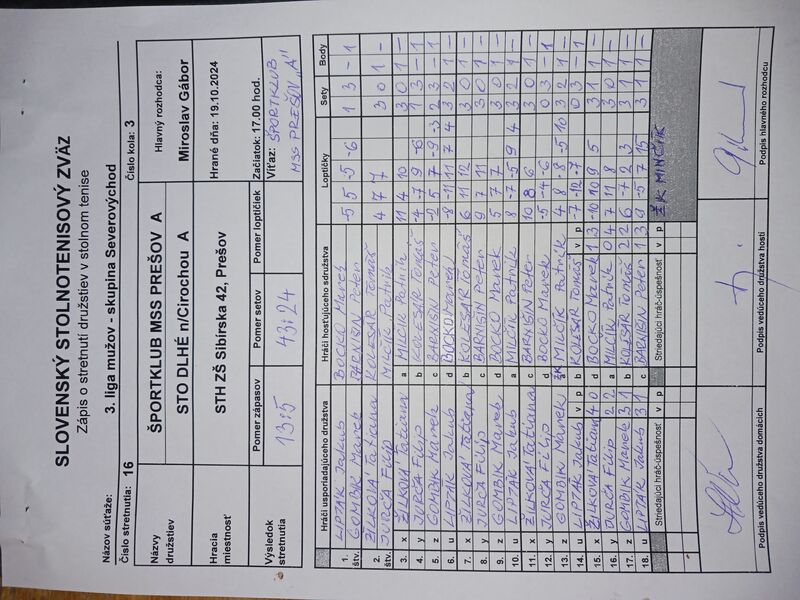 SLOVENSKÝ STOLNOTENISOVÝ ZVÄZ
Zápis o stretnutí družstiev v stolnom tenise
Názov súťaže: 3. liga mužov - skupina Severovýchod
Číslo stretnutia: 16 Číslo kola: 3
Názvy družstiev ŠPORTKLUB MSS PREŠOV A Hlavný rozhodca:
STO DLHÉ n/Cirochou A Miroslav Gábor
Hracia miestnosť STH ZŠ Sibírska 42, Prešov Hrané dňa: 19.10.2024
Začiatok: 17.00 hod.
Výsledok stretnutia Pomer zápasov Pomer setov Pomer loptičiek Víťaz: ŠPORTKLUB
13:5 43:24 MSS PREŠOV "A"
Hráči usporiadajúceho družstva Hráči hosťujúceho sdružstva Loptičky Sety Body
1. štv. LIPTÁK Jakub BOCKO Marek -5 5 -5 -6 1 3 - 1
GOMBIK Marek BARNIŠIN Peter
2. štv. ŽILKOVÁ Tatiana KOLESÁR Tomáš 4 7 7 3 0 1 -
JURČA Filip MILČÍK Patrik
3. x ŽILKOVÁ Tatiana a MILČÍK Patrik 11 4 10 3 0 1 -
4. y JURČA Filip b KOLESÁR Tomáš -4 -7 9 -6 1 3 - 1
5. z GOMBIK Marek c BARNIŠIN Peter 5 7 -9 -3 2 3 - 1
6. u LIPTÁK Jakub d BOCKO Marek -8 -11 11 7 4 3 2 1 -
7. x ŽILKOVÁ Tatiana b KOLESÁR Tomáš 6 11 12 3 0 1 -
8. y JURČA Filip c BARNIŠIN Peter 9 7 11 3 0 1 -
9. z GOMBIK Marek d BOCKO Marek 5 7 7 3 0 1 -
10. u LIPTÁK Jakub a MILČÍK Patrik 8 -7 -5 9 4 3 2 1 -
11. x ŽILKOVÁ Tatiana c BARNIŠIN Peter 10 8 6 3 0 1 -
12. y JURČA Filip d BOCKO Marek -5 -4 -6 0 3 - 1
13. z GOMBIK Marek a ŽK MILČÍK Patrik 4 8 -8 -5 10 3 2 1 -
14. u LIPTÁK Jakub v p b KOLESÁR Tomáš v p -7 -12 -7 0 3 - 1
15. x ŽILKOVÁ Tatiana 4 0 d BOCKO Marek 1 3 -10 10 9 5 3 1 1 -
16. y JURČA Filip 2 2 a MILČÍK Patrik 0 4 7 11 8 3 0 1 -
17. z GOMBIK Marek 3 1 b KOLESÁR Tomáš 2 2 6 -7 2 3 3 1 1 -
18. u LIPTÁK Jakub 3 1 c BARNIŠIN Peter 1 3 9 -5 7 15 3 1 1 -
Striedajúci hráč-úspešnosť v p Striedajúci hráč-úspešnosť v p ŽK MINČÍK
Podpis vedúceho družstva domácich Podpis vedúceho družstva hostí Podpis hlavného rozhodcu